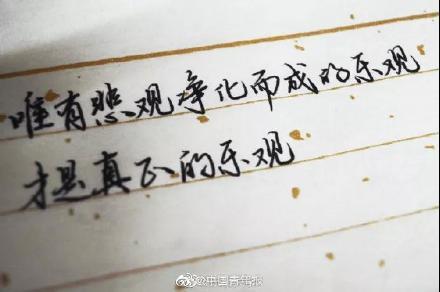 唯有悲观净化而成的乐观
才是真正的乐观
@中国青年报